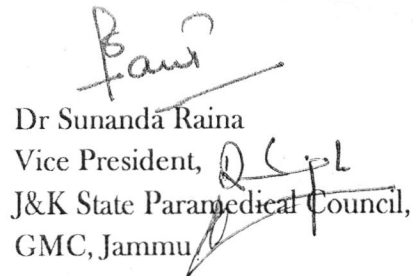 Dr Sunanda Raina
Vice President,
J&K State Paramedical Council,
GMC, Jammu